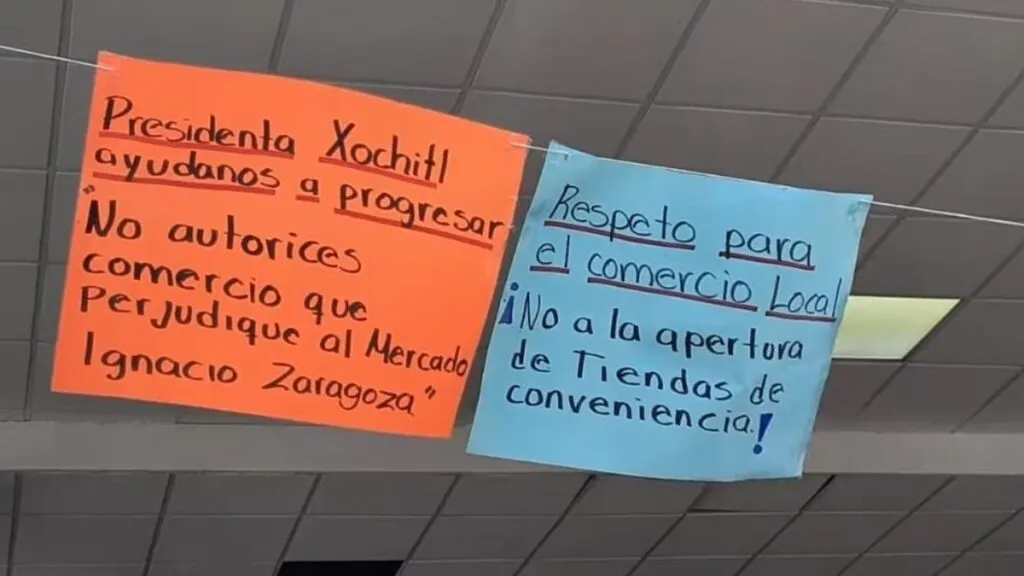 Presidenta Xochitl
ayudanos a progresar
"No autorices
comercio que
perjudique al Mercado
Ignacio Zaragoza"
Respeto para
el comercio Local
¡No a la apertura
de Tiendas de
conveniencia.!